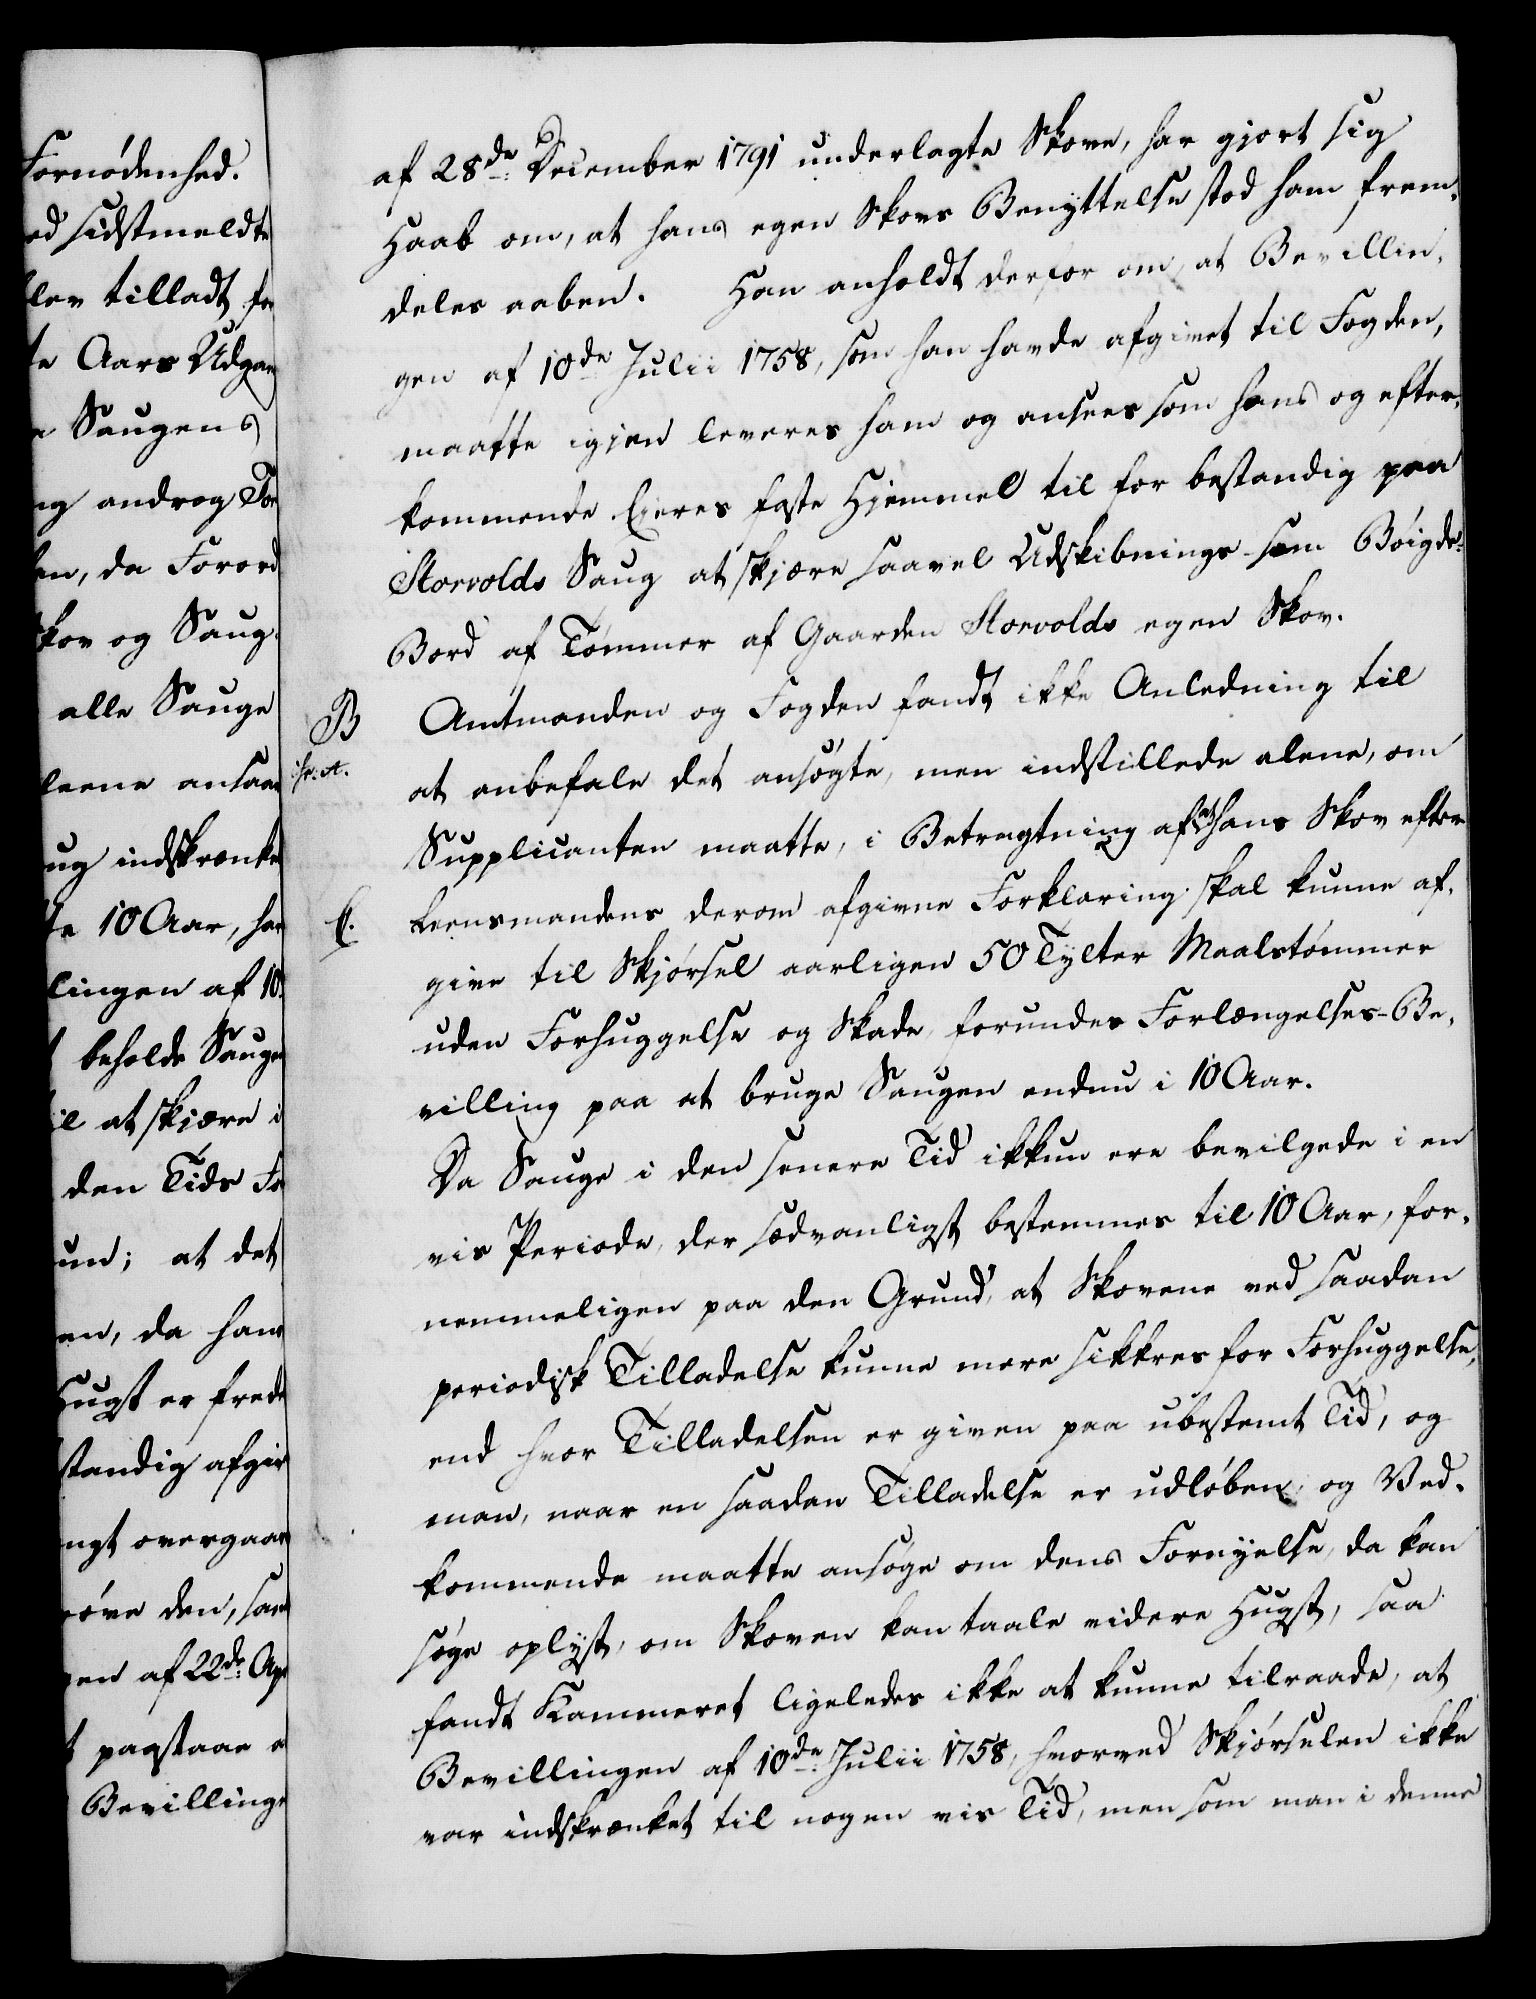 Fornødenhed.
ed sidstmeldte
blev tilladt
te Aars Udgan
Saugens
ng androg
en, da Forord
kov og Saug
alle Sauge
leene ansaae
ug indskrænke
te 10 Aar, har
lingen af 10
beholde Saugen
il at skjære i
den Tids
un; at det
en, da hans
Hugst er frede
standig afgiv
ngt overgaar
røve den, saa
gen af 22de Ap
paastaae
Bevillinge
af 28de: December 1791 underlagte Skove, har gjort sig
Haab om, at hans egen Skovs Benyttelse stod ham frem-
deles aaben. Han anholdt derfor om, at Bevillin-
gen af 10de Julii 1758, som han havde afgivet til Fogden,
maatte igjen leveres ham og ansees som hans og efter-
kommende Eieres faste Hjemmel til for bestandig paa
Storvolds Saug at skjære saavel Udskibnings- som Bøigde-
Bord af Tømmer af Gaarden Storvolds egen Skov.
B Amtmanden og Fogden fandt ikke Anledning til
fr: A. at anbefale det ansøgte, men indstillede alene, om
Supplicanten maatte, i Betragtning af at hans Skov efter
C. Leensmandens derom afgivne Forklaring skal kunne af-
give til Skjørsel aarligen 50 Tylter Maalstømmer
uden Forhuggelse og Skade, forundes Forlængelses-Be-
villing paa at bruge Saugen endnu i 10 Aar.
Da Sauge i den senere Tid ikkun ere bevilgede i en
vis Periode, der sædvanligst bestemmes til 10 Aar, for-
nemmeligen paa den Grund, at Skovene ved saadan
periodisk Tilladelse kunne mere sikkres for Forhuggelse,
end hvor Tilladelsen er given paa ubestemt Tid, og
man, naar en saadan Tilladelse er udløben, og Ved-
kommende maatte ansøge om dens Fornyelse, da kan
søge oplyst, om Skoven kan taale videre Hugst, saa
fandt Kammeret ligeledes ikke at kunne tilraade, at
Bevillingen af 10de: Julii 1758, hvorved Skjørselen ikke
var indskrænket til nogen vis Tid, men som man i denne